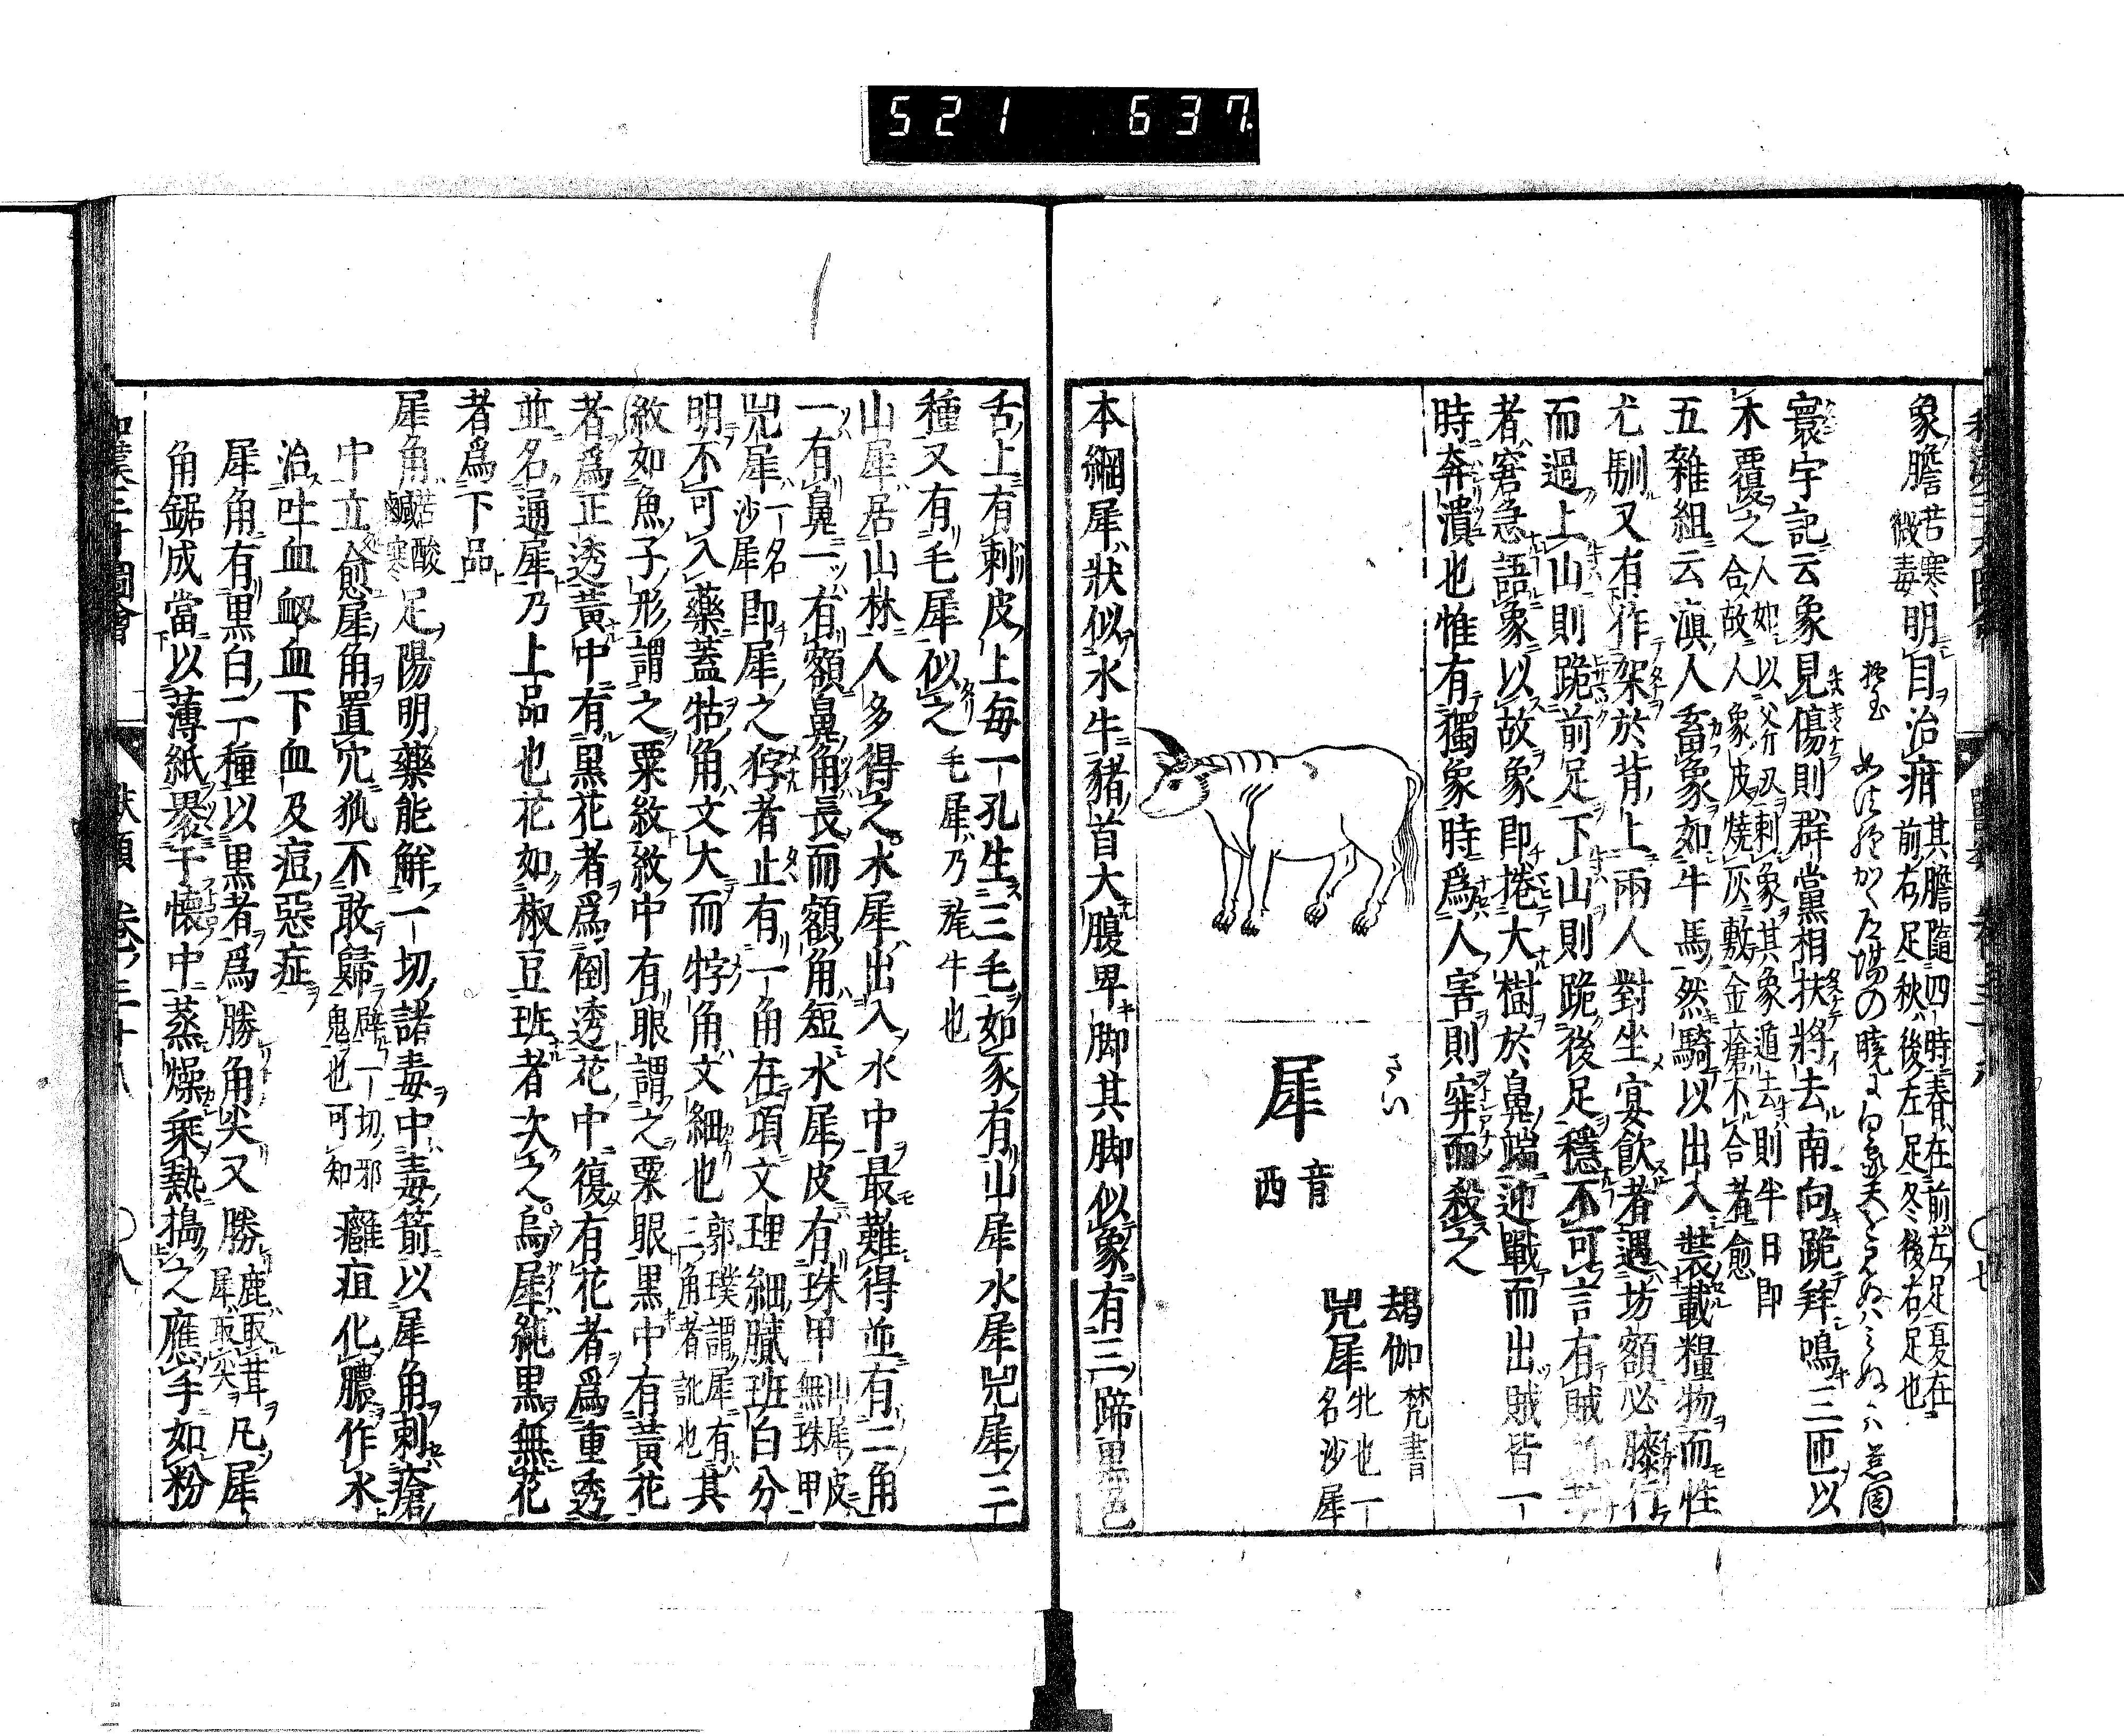 521 637
象膽 苦寒微毒 明目治疳 其膽隨四時春在前左足夏在前右足秋後左足冬後右足也
寰宇記云象見傷則群黨相扶將去南向跪拜鳴三匝以
木覆之 人如以 刃刺象其象遁去則半日即合故人象皮燒灰敷金瘡不合者愈
五雜組云滇人畜象如牛馬然騎以出入裝載糧物而性
尤馴又有作架於背上兩人對坐宴飲者遇坊額必膝行
而過上山則跪前足下山則跪後足穩不可言有賊
者窘急語象以故象即捲大樹於鼻端迎戰而出賊皆一
時奔潰也惟有獨象時爲人害則穽而殺之
さい
犀 音西
朅伽 梵書
兕犀 牝也一名沙犀
本綱犀狀似水牛豬首大腹卑脚其脚似象有三蹄黒色
舌上有刺皮上每一孔生三毛如豕有山犀水犀兕犀三
種又有毛犀似之 毛犀乃旄牛也
山犀居山林人多得之水犀出入水中最難得並有二角
一有鼻一有額鼻角長而額角短水犀皮有珠甲 山犀皮無珠甲
兕犀 一名沙犀 即犀之牸者止有一角在項文理細膩班白分
明不可入藥蓋牯角文大而牸角文細也 郭璞謂犀有三角者訛也 其
紋如魚子形謂之粟紋紋中有眼謂之粟眼黒中有黃花
者爲正透黃中有黒花者爲倒透花中復有花者爲重透
並名通犀乃上品也花如椒豆班者次之烏犀純黒無花
者爲下品
犀角 苦酸鹹寒 足陽明藥能解一切諸毒中毒箭以犀角刺瘡
中立愈犀角置穴狐不敢歸 辟一切邪鬼也可知 癰疽化膿作水
治吐血衂血下血及痘惡症
犀角有黒白二種以黒者爲勝角尖又勝 鹿取茸犀取尖 凡犀
角鋸成當以薄紙褁于懷中蒸燥乘熱搗之應手如粉